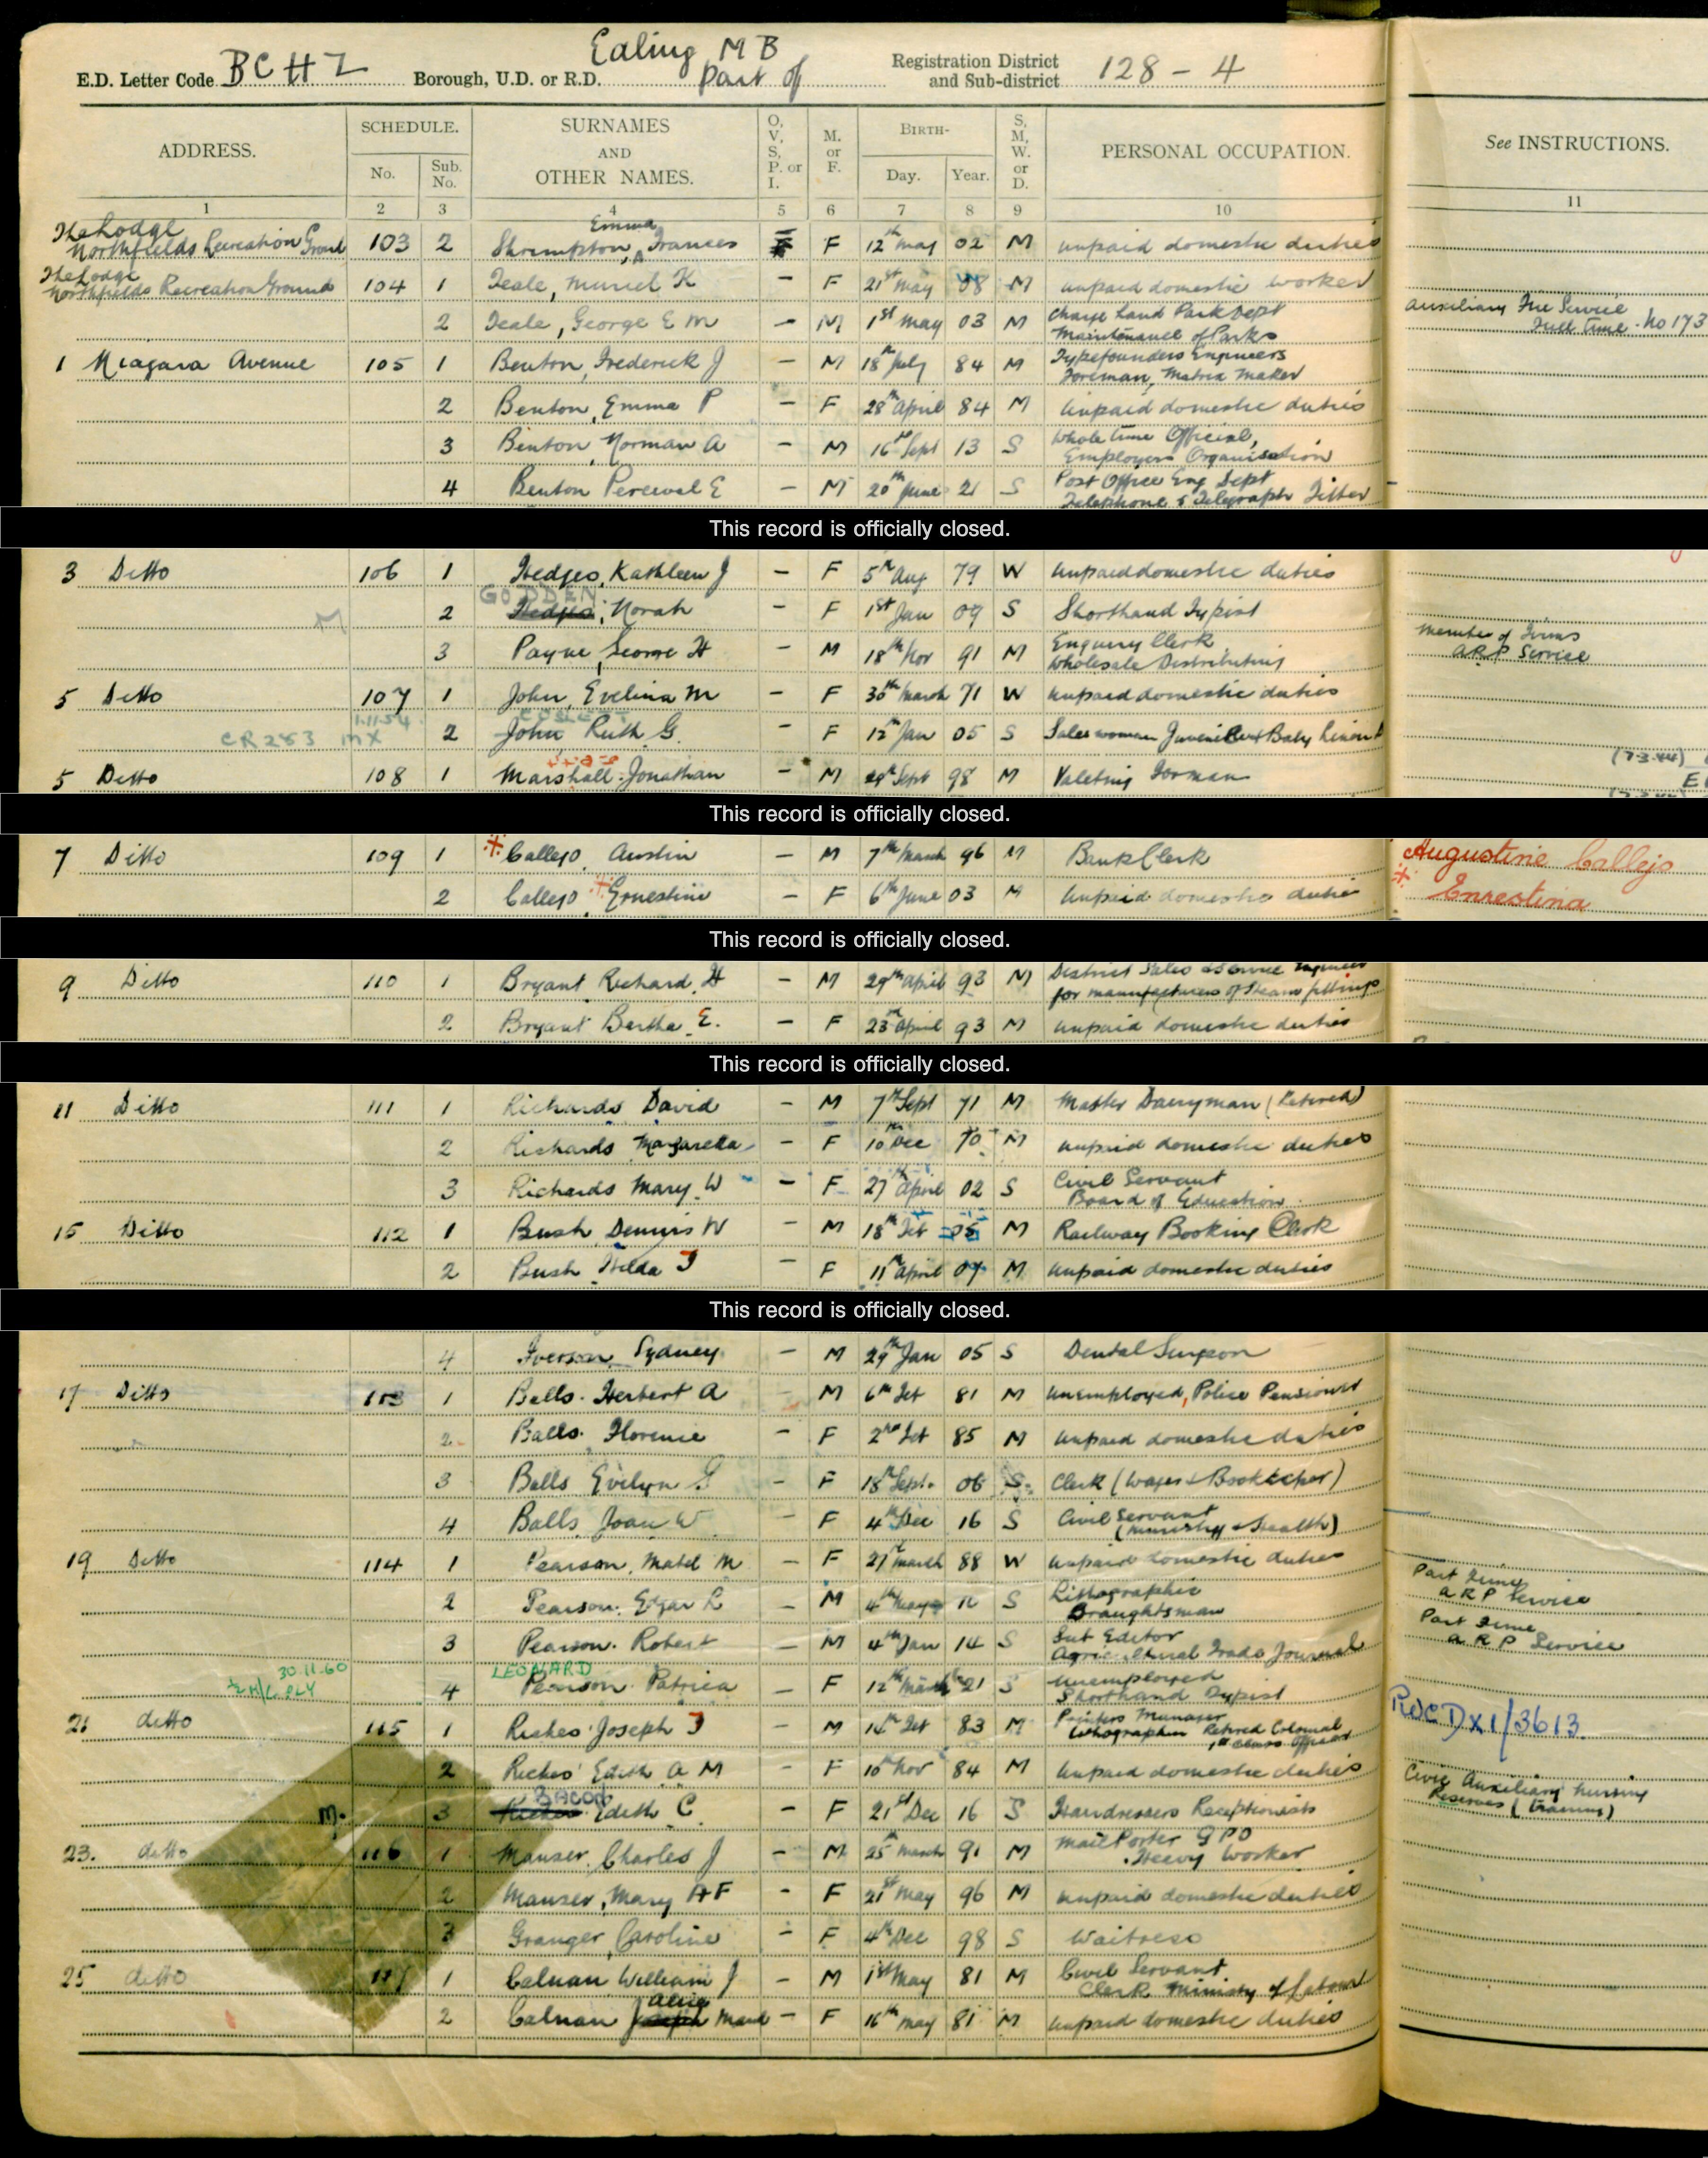 E.D. Letter Code BCHZ Borough, U.D. or R.D. Ealing MB Part of Registration District and Sub-district 128 - 4
ADDRESS. SCHEDULE. No. Sub. No. SURNAMES AND OTHER NAMES. O, V, S, P. or I. M. or F. BIRTH- Day. Year. S, M, W. or D. PERSONAL OCCUPATION. See INSTRUCTIONS.
1 2 3 4 5 6 7 8 9 10 11
The Lodge Northfields Recreation Ground 103 2 Shrimpton, Emma Frances F 12th May 02 M unpaid domestic duties
The Lodge Northfields Recreation Ground 104 1 Teale, Muriel K - F 21st May 08 M unpaid domestic worker
2 Teale, George E M - M 1st May 03 M Charge hand Park Dept Maintenance of Parks Auxiliary Fire Service Full time - No 173
1 Niagara Avenue 105 1 Benton, Frederick J - M 18th July 84 M Typefounders Engineers Foreman, Matrix Maker
2 Benton, Emma P - F 28th April 84 M Unpaid domestic duties
3 Benton, Norman A - M 16th Sept 13 S Whole time Official, Employers Organisation
4 Benton Percival E - M 20th June 21 S Post Office Eng Dept Telephone & Telegraph Fitter
This record is officially closed.
3 Ditto 106 1 Hedges, Kathleen J - F 5th Aug 79 W Unpaid domestic duties
M 2 GODDEN Hedges, Norah - F 1st Jan 09 S Shorthand Typist
3 Payne, George H - M 18th Nov 91 M Enquiry Clerk Wholesale Distributing Member of Firms ARP Service
5 Ditto 107 1 John, Evelina M - F 30th March 71 W unpaid domestic duties
1.11.54 CR 283 MX 2 John Ruth G. - F 12th Jan 05 S Saleswoman Juvenile & Baby Linen
5 Ditto 108 1 Marshall Jonathan - M 29th Sept 98 M Valeting Forman (7.3.44)
This record is officially closed.
7 Ditto 109 1 Callejo Austin - M 7th March 96 M Bank Clerk Augustine Callejo
2 Callejo Ernestine - F 6th June 03 M Unpaid domestic duties Enrestina
This record is officially closed.
9 Ditto 110 1 Bryant Richard H - M 29th April 93 M District Sales & Service Engineer for manufacturers of Steam fittings
2 Bryant Bertha E. - F 23rd April 93 M unpaid domestic duties
This record is officially closed.
11 Ditto 111 1 Richards David - M 7th Sept 71 M Master Dairyman (Retired)
2 Richards Margaretta - F 10th Dec 70 M unpaid domestic duties
3 Richards Mary W - F 27th April 02 S Civil Servant Board of Education
15 Ditto 112 1 Bush Dennis W - M 18th 05 M Railway Booking Clerk
2 Bush Hilda J - F 11th April 07 M Unpaid domestic duties
This record is officially closed.
4 Iverson Sydney - M 29th Jan 05 S Dental Surgeon
17 Ditto 113 1 Balls Herbert A M 6th 81 M unemployed, Police Pensioner
2 Balls Florence - F 2nd 85 M unpaid domestic duties
3 Balls Evelyn G - F 18th Sept. 06 S Clerk (Wages & Bookkeeper)
4 Balls Joan W - F 4th Dec 16 S Civil Servant (Ministry of Health)
19 Ditto 114 1 Pearson, Mabel M - F 27th March 88 W unpaid domestic duties
2 Pearson, Edgar L - M 4th May S Lithographic Draughtsman Part Time ARP Service
3 Pearson Robert - M 4th Jan 14 S Sub Editor Agricultural Trade Journal Part Time ARP Service
30.11.60 4 LEONARD Pearson Patricia - F 12th March 21 S Unemployed Shorthand Typist
21 ditto 115 1 Riches Joseph J - M 83 M Printers Manager Lithographer Retired Colonial Officer ROC DX1/3613.
2 Riches Edith A M - F 10th Nov 84 M Unpaid domestic duties
M. 3 BACON Riches Edith C. - F 21st Dec 16 S Hairdressers Receptionist Civic Auxiliary Nursing Reserves (training)
23. ditto 116 1 Manser, Charles J - M 25th March 91 M Mail Porter GPO Heavy Worker
2 Manser, Mary A F - F 21st May 96 M unpaid domestic duties
3 Granger, Caroline - F 4th Dec 98 S Waitress
25 ditto 117 1 Calnan William J - M 1st May 81 M Civil Servant Clerk Ministry of Labour
2 Calnan Joseph Alice Maud - F 16th May 81 M unpaid domestic duties